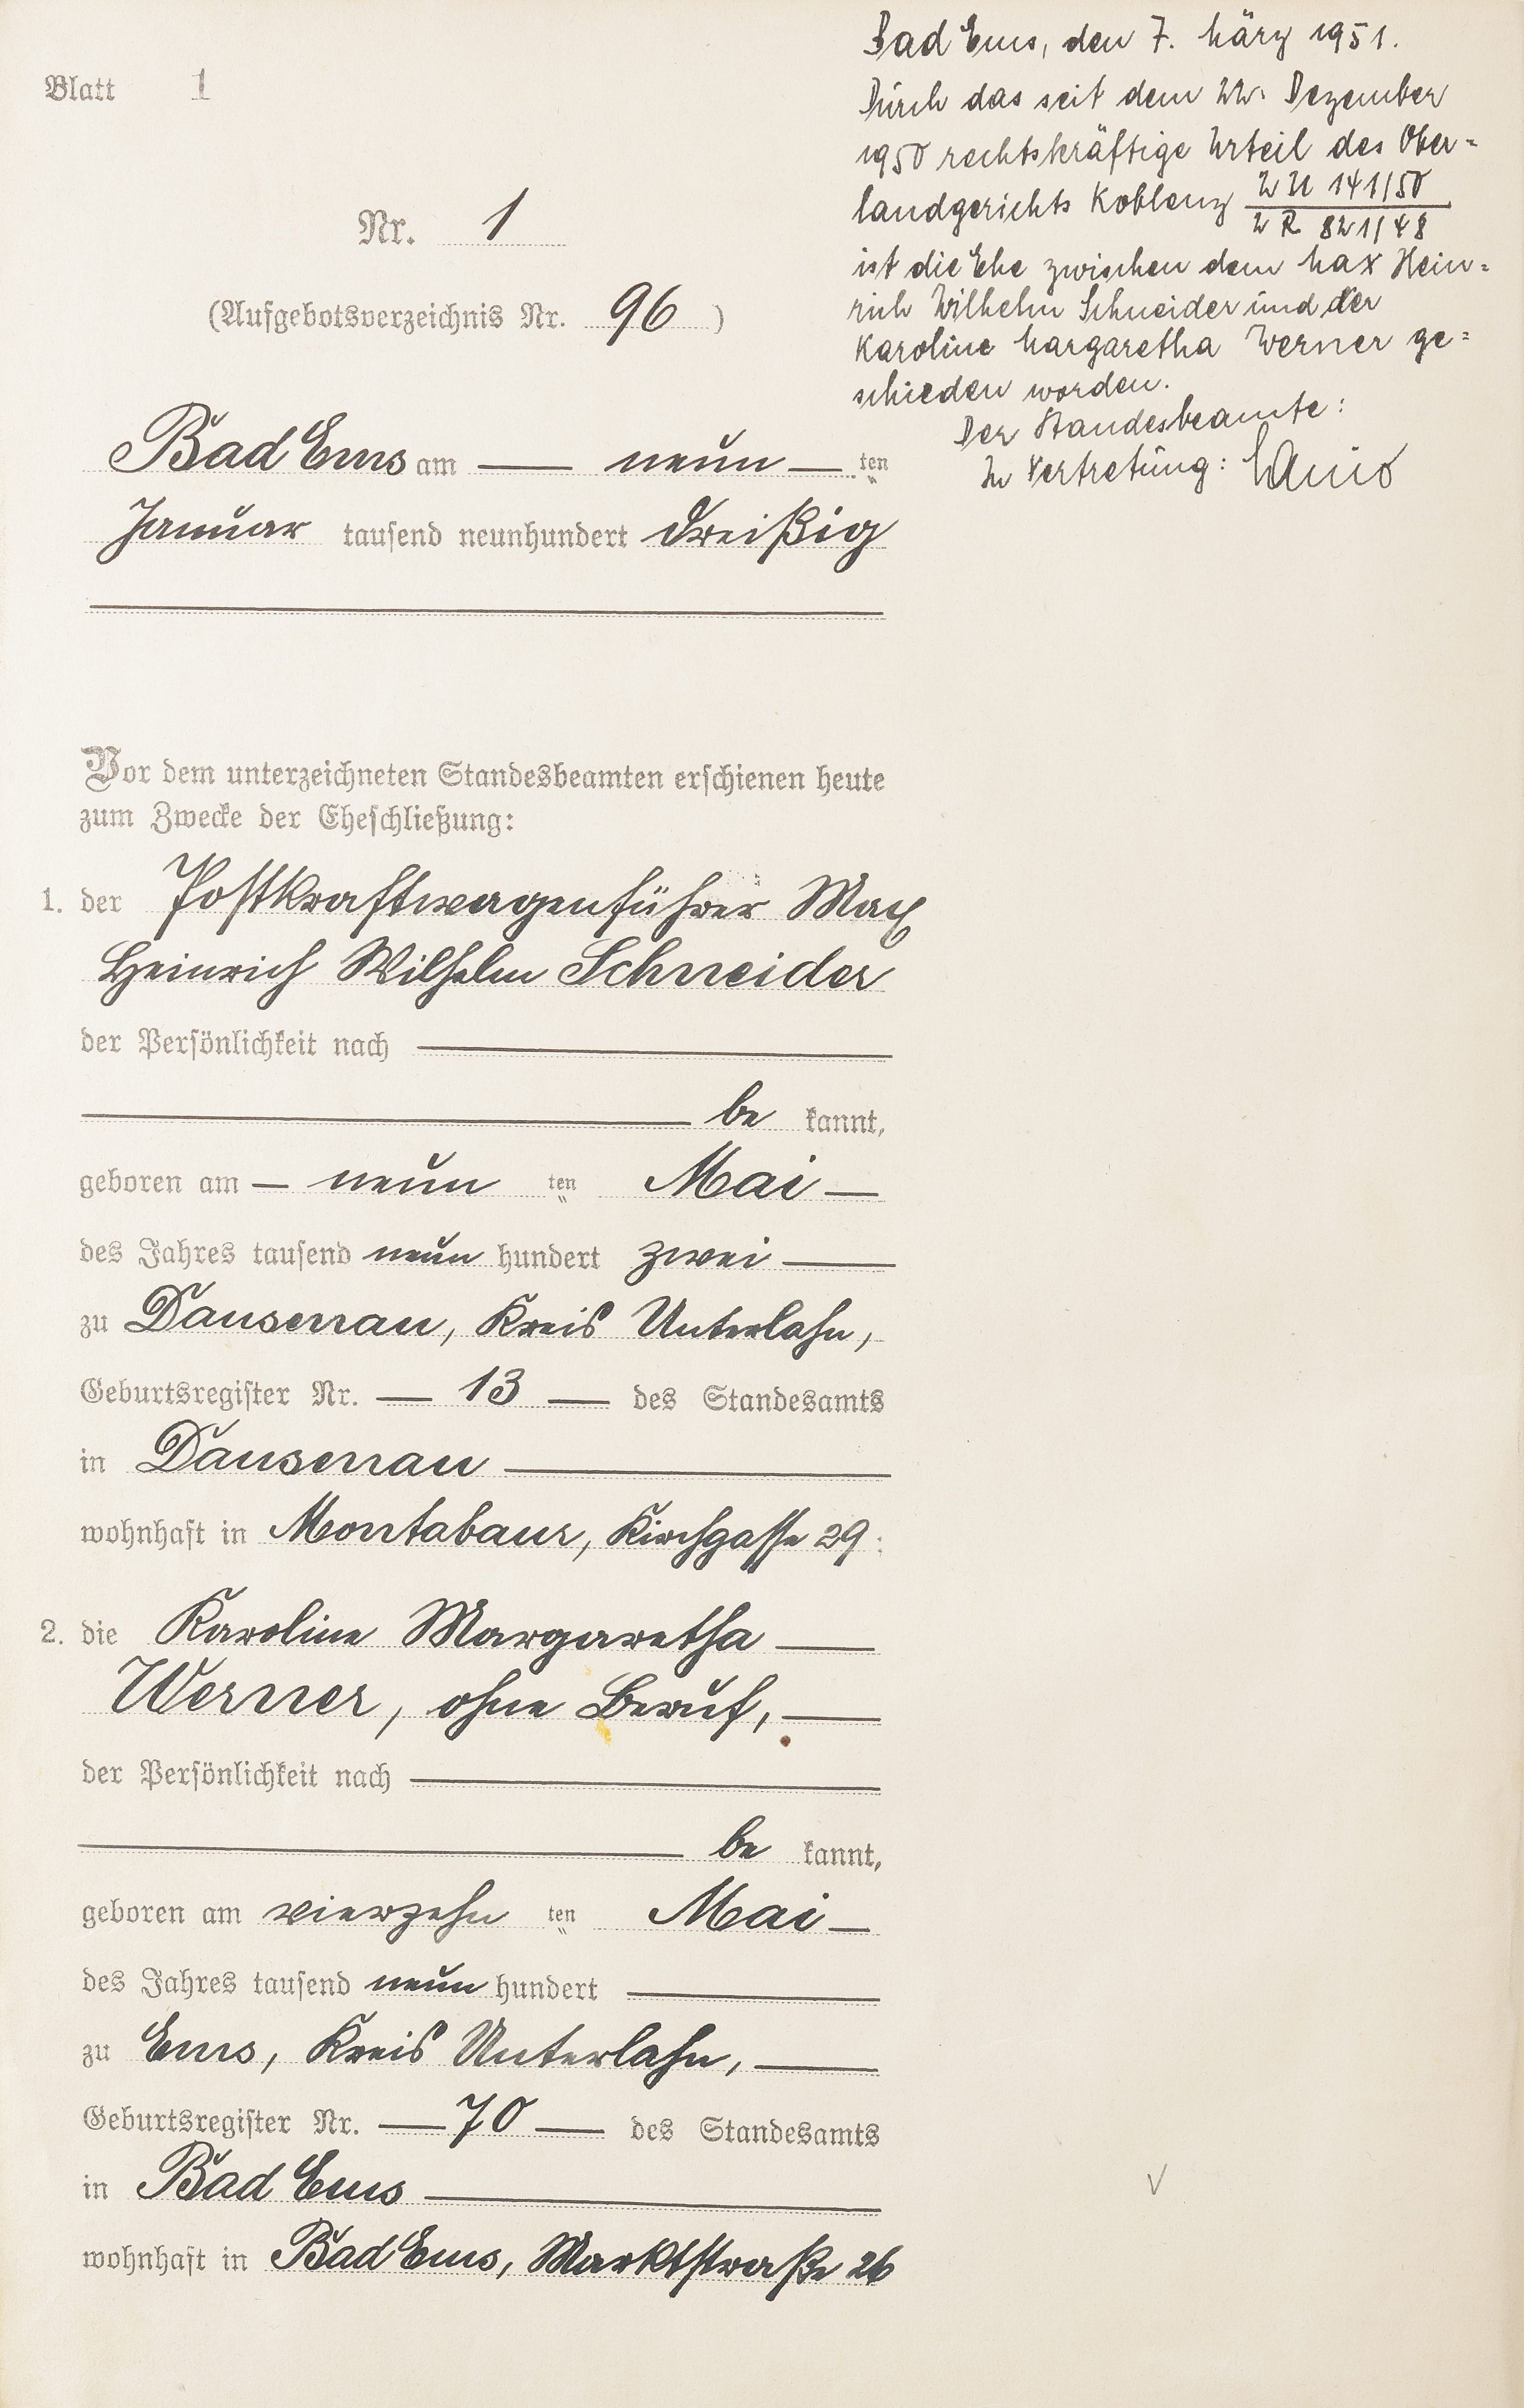 Blatt 1
Nr. 1
(Aufgebotsverzeichnis Nr. 96)
Bad Ems am — neun — ten
Januar tausend neunhundert dreißig
Bad Ems, den 7. März 1951.
Durch das seit dem 22. Dezember
1950 rechtskräftige Urteil des Ober=
landgerichts Koblenz 2 U 141/50
2 R 821/48
ist die Ehe zwischen dem Max Hein=
rich Wilhelm Schneider und der
Karoline Margaretha Werner ge=
schieden worden.
Der Standesbeamte:
In Vertretung:
Vor dem unterzeichneten Standesbeamten erschienen heute
zum Zwecke der Eheschließung:
1. der Postkraftwagenführer Max
Heinrich Wilhelm Schneider
der Persönlichkeit nach —
— be kannt,
geboren am — neun ten Mai —
des Jahres tausend neun hundert zwei —
zu Dausenau, Kreis Unterlahn,
Geburtsregister Nr. — 13 — des Standesamts
in Dausenau —
wohnhaft in Montabaur, Kirchgasse 29.
2. die Karoline Margaretha —
Werner, ohne Beruf, —
der Persönlichkeit nach —
— be kannt,
geboren am vierzehn ten Mai —
des Jahres tausend neun hundert —
zu Ems, Kreis Unterlahn, —
Geburtsregister Nr. — 70 — des Standesamts
in Bad Ems —
wohnhaft in Bad Ems, Marktstraße 26